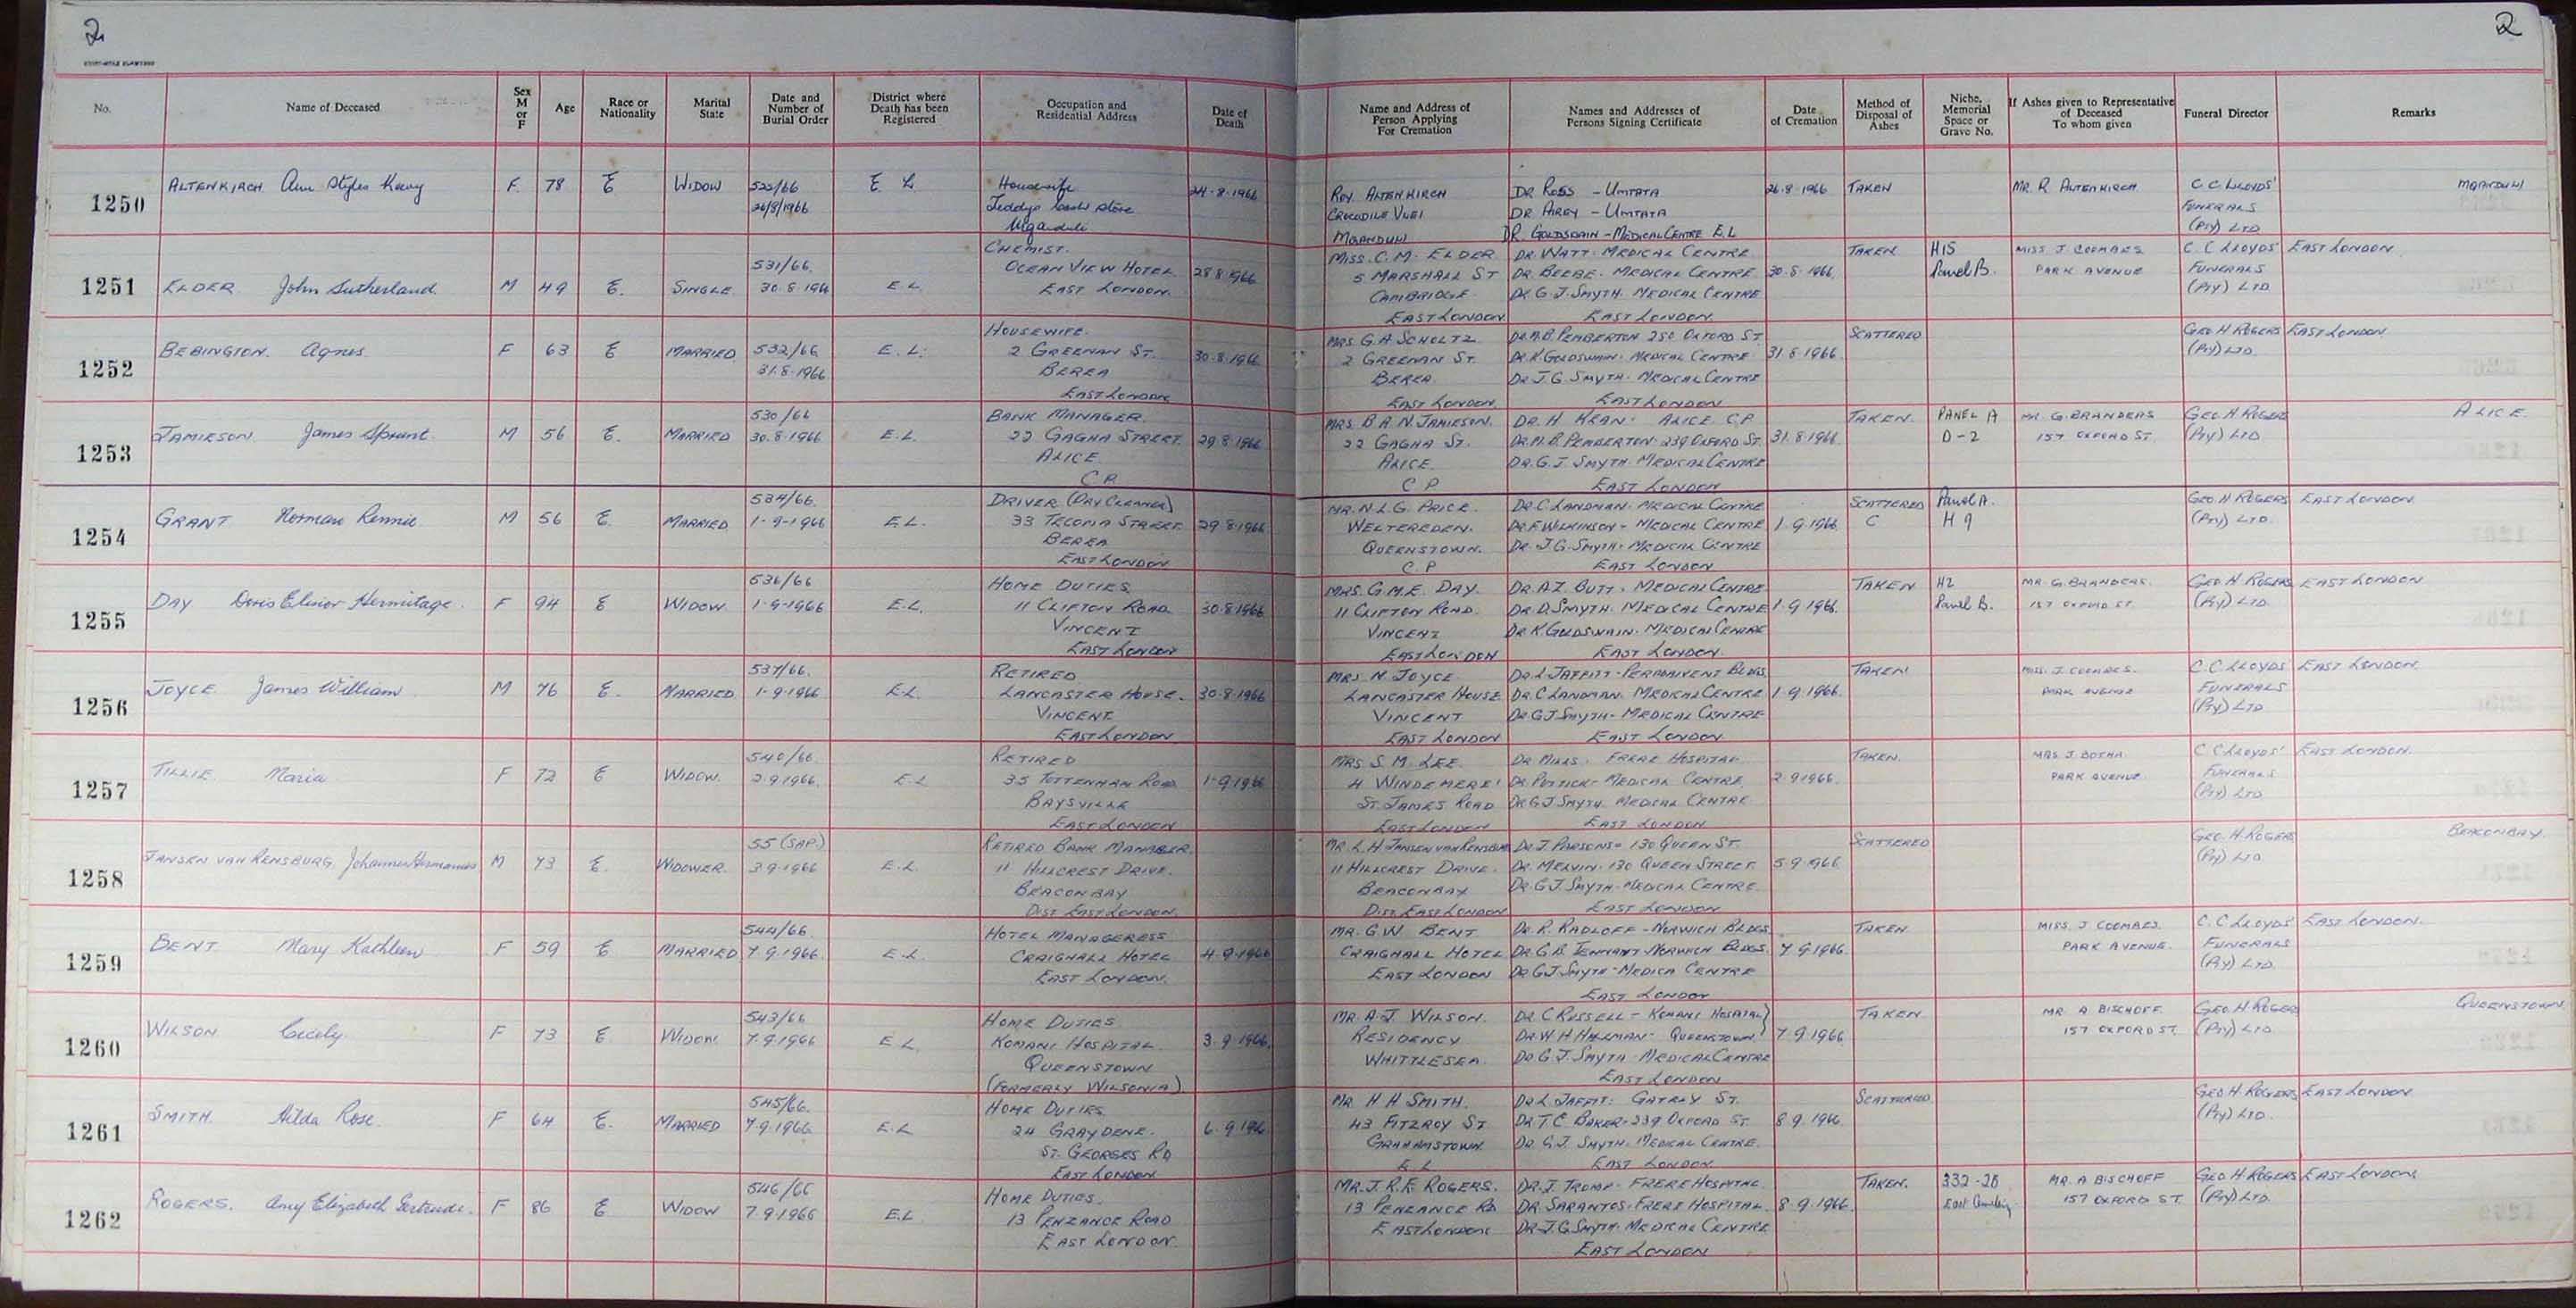 2
2
No.
Name of Deceased
Sex M or F
Age
Race or Nationality
Marital State
Date and Number of Burial Order
District where Death has been Registered
Occupation and Residential Address
Date of Death
Name and Address of Person Applying For Cremation
Names and Addresses of Persons Signing Certificate
Date of Cremation
Method of Disposal of Ashes
Niche, Memorial Space or Grave No.
If Ashes given to Representative of Deceased To whom given
Funeral Director
Remarks
1250 ALTENKIRCH Ann Styles F. 78 E WIDOW 26/8/1966 E L Housewife Teddys Cash Store Mqanduli 24.8.1966
ROY ALTENKIRCH CROCODILE VLEI MQANDULI DR ROSS - UMTATA DR AIREY - UMTATA DR. GOLDSWAIN - MEDICAL CENTRE E.L 26.8.1966 TAKEN MR. R ALTENKIRCH C.C. LLOYDS' FUNERALS (Pty) LTD MQANDULI
1251 ELDER John Sutherland M 49 E. SINGLE 531/66. 30.8.1966 E.L. CHEMIST. OCEAN VIEW HOTEL EAST LONDON. 28.8.1966
MISS. C.M. ELDER 5 MARSHALL ST CAMBRIDGE EAST LONDON. DR. WATT. MEDICAL CENTRE DR BEEBE. MEDICAL CENTRE DR. G.J. SMYTH. MEDICAL CENTRE EAST LONDON. 30.8.1966 TAKEN H15 Panel B. MISS J. COOMBES PARK AVENUE C.C LLOYDS' FUNERALS (Pty) LTD EAST LONDON
1252 BEBINGTON. Agnes F 63 E MARRIED 532/66 31.8.1966 E.L. HOUSEWIFE. 2 GREENAN ST. BEREA EAST LONDON 30.8.1966
MRS G.H. SCHOLTZ 2 GREENAN ST. BEREA. EAST LONDON DR M.B. PEMBERTON 250 OXFORD ST DR. K. GOLDSWAIN. MEDICAL CENTRE DR J.G. SMYTH. MEDICAL CENTRE EAST LONDON 31.8.1966 SCATTERED GEO H ROGERS (Pty) LTD. EAST LONDON
1253 JAMIESON James Sprunt M 56 E. MARRIED 530/66 30.8.1966 E.L. BANK MANAGER. 22 GAGHA STREET. ALICE. C.P. 29.8.1966
MRS. B A N. JAMIESON. 22 GAGHA ST. ALICE. C P DR. H KEAN. ALICE C.P. DR. M.B. PEMBERTON. 239 OXFORD ST. DR. G.J. SMYTH. MEDICAL CENTRE EAST LONDON 31.8.1966 TAKEN. PANEL A D-2 MR G. BRANDERS 157 OXFORD ST. GEO. H ROGERS (Pty) LTD ALICE
1254 GRANT Norman Rennie M 56 E. MARRIED 534/66. 1-9-1966 E.L. DRIVER (DRY CLEANER) 33 TECOMA STREET. BEREA EAST LONDON 29.8.1966
MR. N.L.G. PRICE. QUEENSTOWN. C.P DR C. LANDMAN. MEDICAL CENTRE DR F. WILKINSON - MEDICAL CENTRE DR. J.G. SMYTH. MEDICAL CENTRE EAST LONDON 1.9.1966 SCATTERED C Panel A. H 9 GEO H ROGERS (Pty) LTD. EAST LONDON
1255 DAY Doris Elinor Hermitage. F 94 E WIDOW. 536/66 1-9-1966 E.L. HOME DUTIES. 11 CLIFTON ROAD VINCENT EAST LONDON 30.8.1966
MRS. G.M.E. DAY 11 CLIFTON ROAD. VINCENT EAST LONDON DR A.I. BUTT. MEDICAL CENTRE DR. D. SMYTH. MEDICAL CENTRE DR K. GOLDSWAIN. MEDICAL CENTRE EAST LONDON. 1.9.1966. TAKEN H2 Panel B. MR. G. BRANDERS. 157 OXFORD ST. GEO. H. ROGERS (Pty) LTD. EAST LONDON
1256 JOYCE James William M 76 E. MARRIED. 537/66. 1.9.1966 E.L. RETIRED LANCASTER HOUSE. VINCENT EAST LONDON 30.8.1966
MRS. N. JOYCE LANCASTER HOUSE VINCENT EAST LONDON DR. L. JAFFIT - PERMANENT BLDGS DR. C LANDMAN. MEDICAL CENTRE DR GJ SMYTH - MEDICAL CENTRE EAST LONDON 1.9.1966. TAKEN MISS. J. COOMBES. PARK AVENUE C.C. LLOYDS FUNERALS (Pty) LTD EAST LONDON
1257 TILLIE Maria F 72 E WIDOW. 540/66. 2.9.1966. E.L RETIRED 35 TOTTENHAM ROAD BAYSVILLE EAST LONDON 1.9.1966
MRS S.M. LEE. 4 WINDEMERE ST. JAMES ROAD EAST LONDON DR MILLS. FRERE HOSPITAL MEDICAL CENTRE DR GJ SMYTH. MEDICAL CENTRE. EAST LONDON 2.9.1966. TAKEN. MRS J. BOTHA PARK AVENUE C C LLOYDS' FUNERALS (Pty) LTD EAST LONDON.
1258 JANSEN VAN RENSBURG. Johannes Hermanus M 73 E. WIDOWER. 55 (SAP.) 3.9.1966 E.L. RETIRED BANK MANAGER. 11 HILLCREST DRIVE. BEACON BAY DIST. EAST LONDON.
MR L.H JANSEN VAN RENSBURG 11 HILLCREST DRIVE. BEACON BAY DIST. EAST LONDON DR J. PARSONS - 130 QUEEN ST. DR. MELVIN. 130 QUEEN STREET. DR GJ. SMYTH - MEDICAL CENTRE. EAST LONDON 5.9.1966 SCATTERED GEO. H. ROGERS (Pty) LTD BEACON BAY
1259 BENT Mary Kathleen F 59 E MARRIED 544/66. 7.9.1966. E.L. HOTEL MANAGERESS CRAIGHALL HOTEL EAST LONDON. 4.9.1966
MR. G.W. BENT CRAIGHALL HOTEL EAST LONDON DR. R. RADLOFF - NORWICH BLDGS. DR G.B. TENNANT - NORWICH BLDGS. DR GJ SMYTH - MEDICA CENTRE EAST LONDON 7.9.1966. TAKEN MISS. J COOMBES. PARK AVENUE. C.C LLOYDS' FUNERALS (Pty) LTD. EAST LONDON.
1260 WILSON Cicely F 73 E WIDOW 543/66 7.9.1966 E L. HOME DUTIES KOMANI HOSPITAL. QUEENSTOWN (FORMERLY WILSONIA) 3.9.1966.
MR. A.J. WILSON. RESIDENCY WHITTLESEA DR. C RUSSELL - KOMANI HOSPITAL} QUEENSTOWN DR G.J. SMYTH. MEDICAL CENTRE EAST LONDON 7.9.1966 TAKEN MR. A BISCHOFF. 157 OXFORD ST. GEO. H. ROGERS (Pty) LTD. QUEENSTOWN
1261 SMITH. Hilda Rose. F 64 E. MARRIED 545/66. 7.9.1966. E.L HOME DUTIES. 24 GRAYDENE. ST. GEORGES RD EAST LONDON 6.9.1966
MR H H SMITH. 43 FITZROY ST GRAHAMSTOWN. E L DR L. JAFFIT. GATELY ST. DR T.C BAKER - 239 OXFORD ST. DR. G.J. SMYTH. MEDICAL CENTRE. EAST LONDON. 8.9.1966. SCATTERED. GEO H. ROGERS (Pty) LTD. EAST LONDON
1262 ROGERS. Amy Elizabeth Gertrude. F 86 E WIDOW 546/66 7.9.1966 E.L HOME DUTIES. 13 PENZANCE ROAD EAST LONDON.
MR. J.R.F. ROGERS. 13 PENZANCE RD EAST LONDON DR. J. TROMP. FRERE HOSPITAL DR SARANTOS. FRERE HOSPITAL. DR J.G. SMYTH. MEDICAL CENTRE EAST LONDON 8.9.1966. TAKEN. 332-2B MR. A BISCHOFF 157 OXFORD ST. GEO H ROGERS (Pty) LTD. EAST LONDON